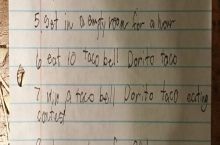 5. Sit in a empty room for a hour
6 eat 10 taco bell Dorito taco
7 win a taco bell Dorito taco eating
contest